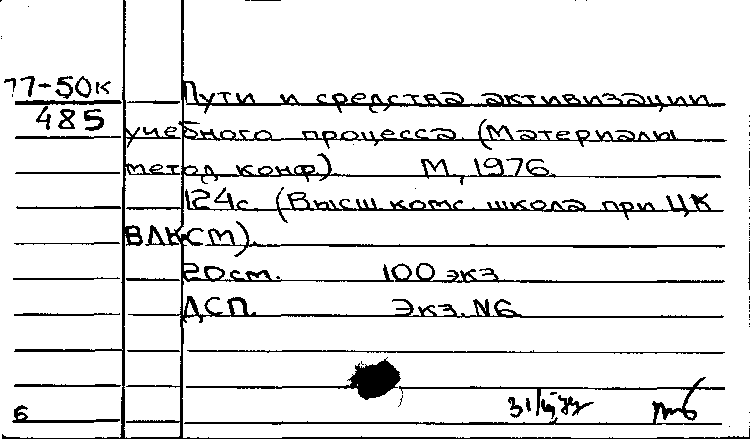 77-50к
485
Пути и средства активизации
учебного процесса. (Материалы
метод. конф.) М., 1976.
124с. (Высш. комс. школа при ЦК
ВЛКСМ).
20см. 100 экз
ДСП. Экз. №6
б